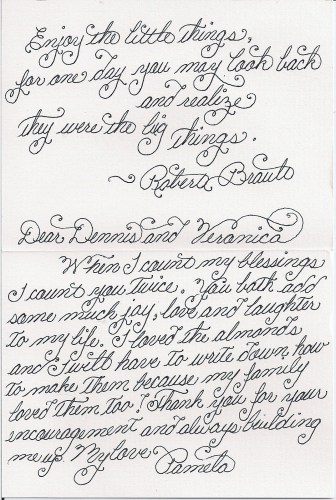 Enjoy the little things,
for one day you may look back
and realize
they were the big things.
~ Robert Brault
Dear Dennis and Veronica
When I count my blessings
I count you twice. You both add
some much joy, love and laughter
to my life. I loved the almonds
and I will have to write down how
to make them because my family
loved them too! Thank you for your
encouragement and always building
me up. My love Pamela